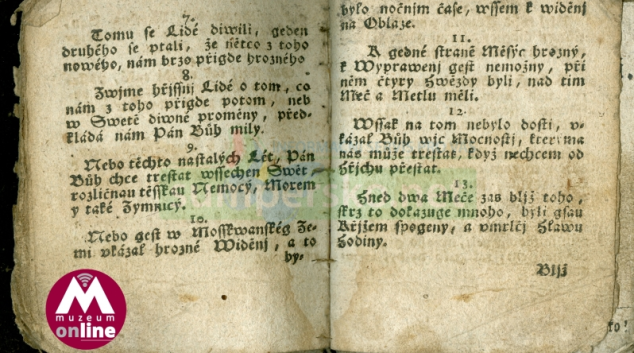 7.
Tomu se Lidé diwili, geden
druhého se ptali, že něťco z toho
nowého, nám brzo přigde hrozného
8.
Zwjme hřjssnj Lidé o tom, co
nám z toho přigde potom, neb
w Swetě diwné proměny, před-
kládá nám Pán Bůh milý.
9.
Nebo těchto nastalých Lét, Pán
Bůh chce trestat wssechen Swět,
rozličnau těsskau Nemocý, Morem
y také Zymnicý.
10.
Nebo gest w Mosskwanskég Ze-
mi vkázal hrozné Widěnj, a to
by-
bylo nočnim čase, wssem k widěnj
na Oblaze.
11.
K gedné straně Měsýc hrozný,
k Wyprawenj gest nemožný, při
něm čtyry Hwězdy byli, nad tim
Meč a Metlu měli.
12.
Wssak na tom nebylo dosti, v-
kázal Bůh wjc Mocnosti, kterima
nás může trestat, když nechcem od
Hřjchu přestat.
13.
Hned dwa Meče zas bljž toho,
skrz to dokazuge mnoho, byli gsau
Křjžem spogeny, a vmrlčj Hlawu
Hodiny.
Bljž
to!
M
muzeum
online